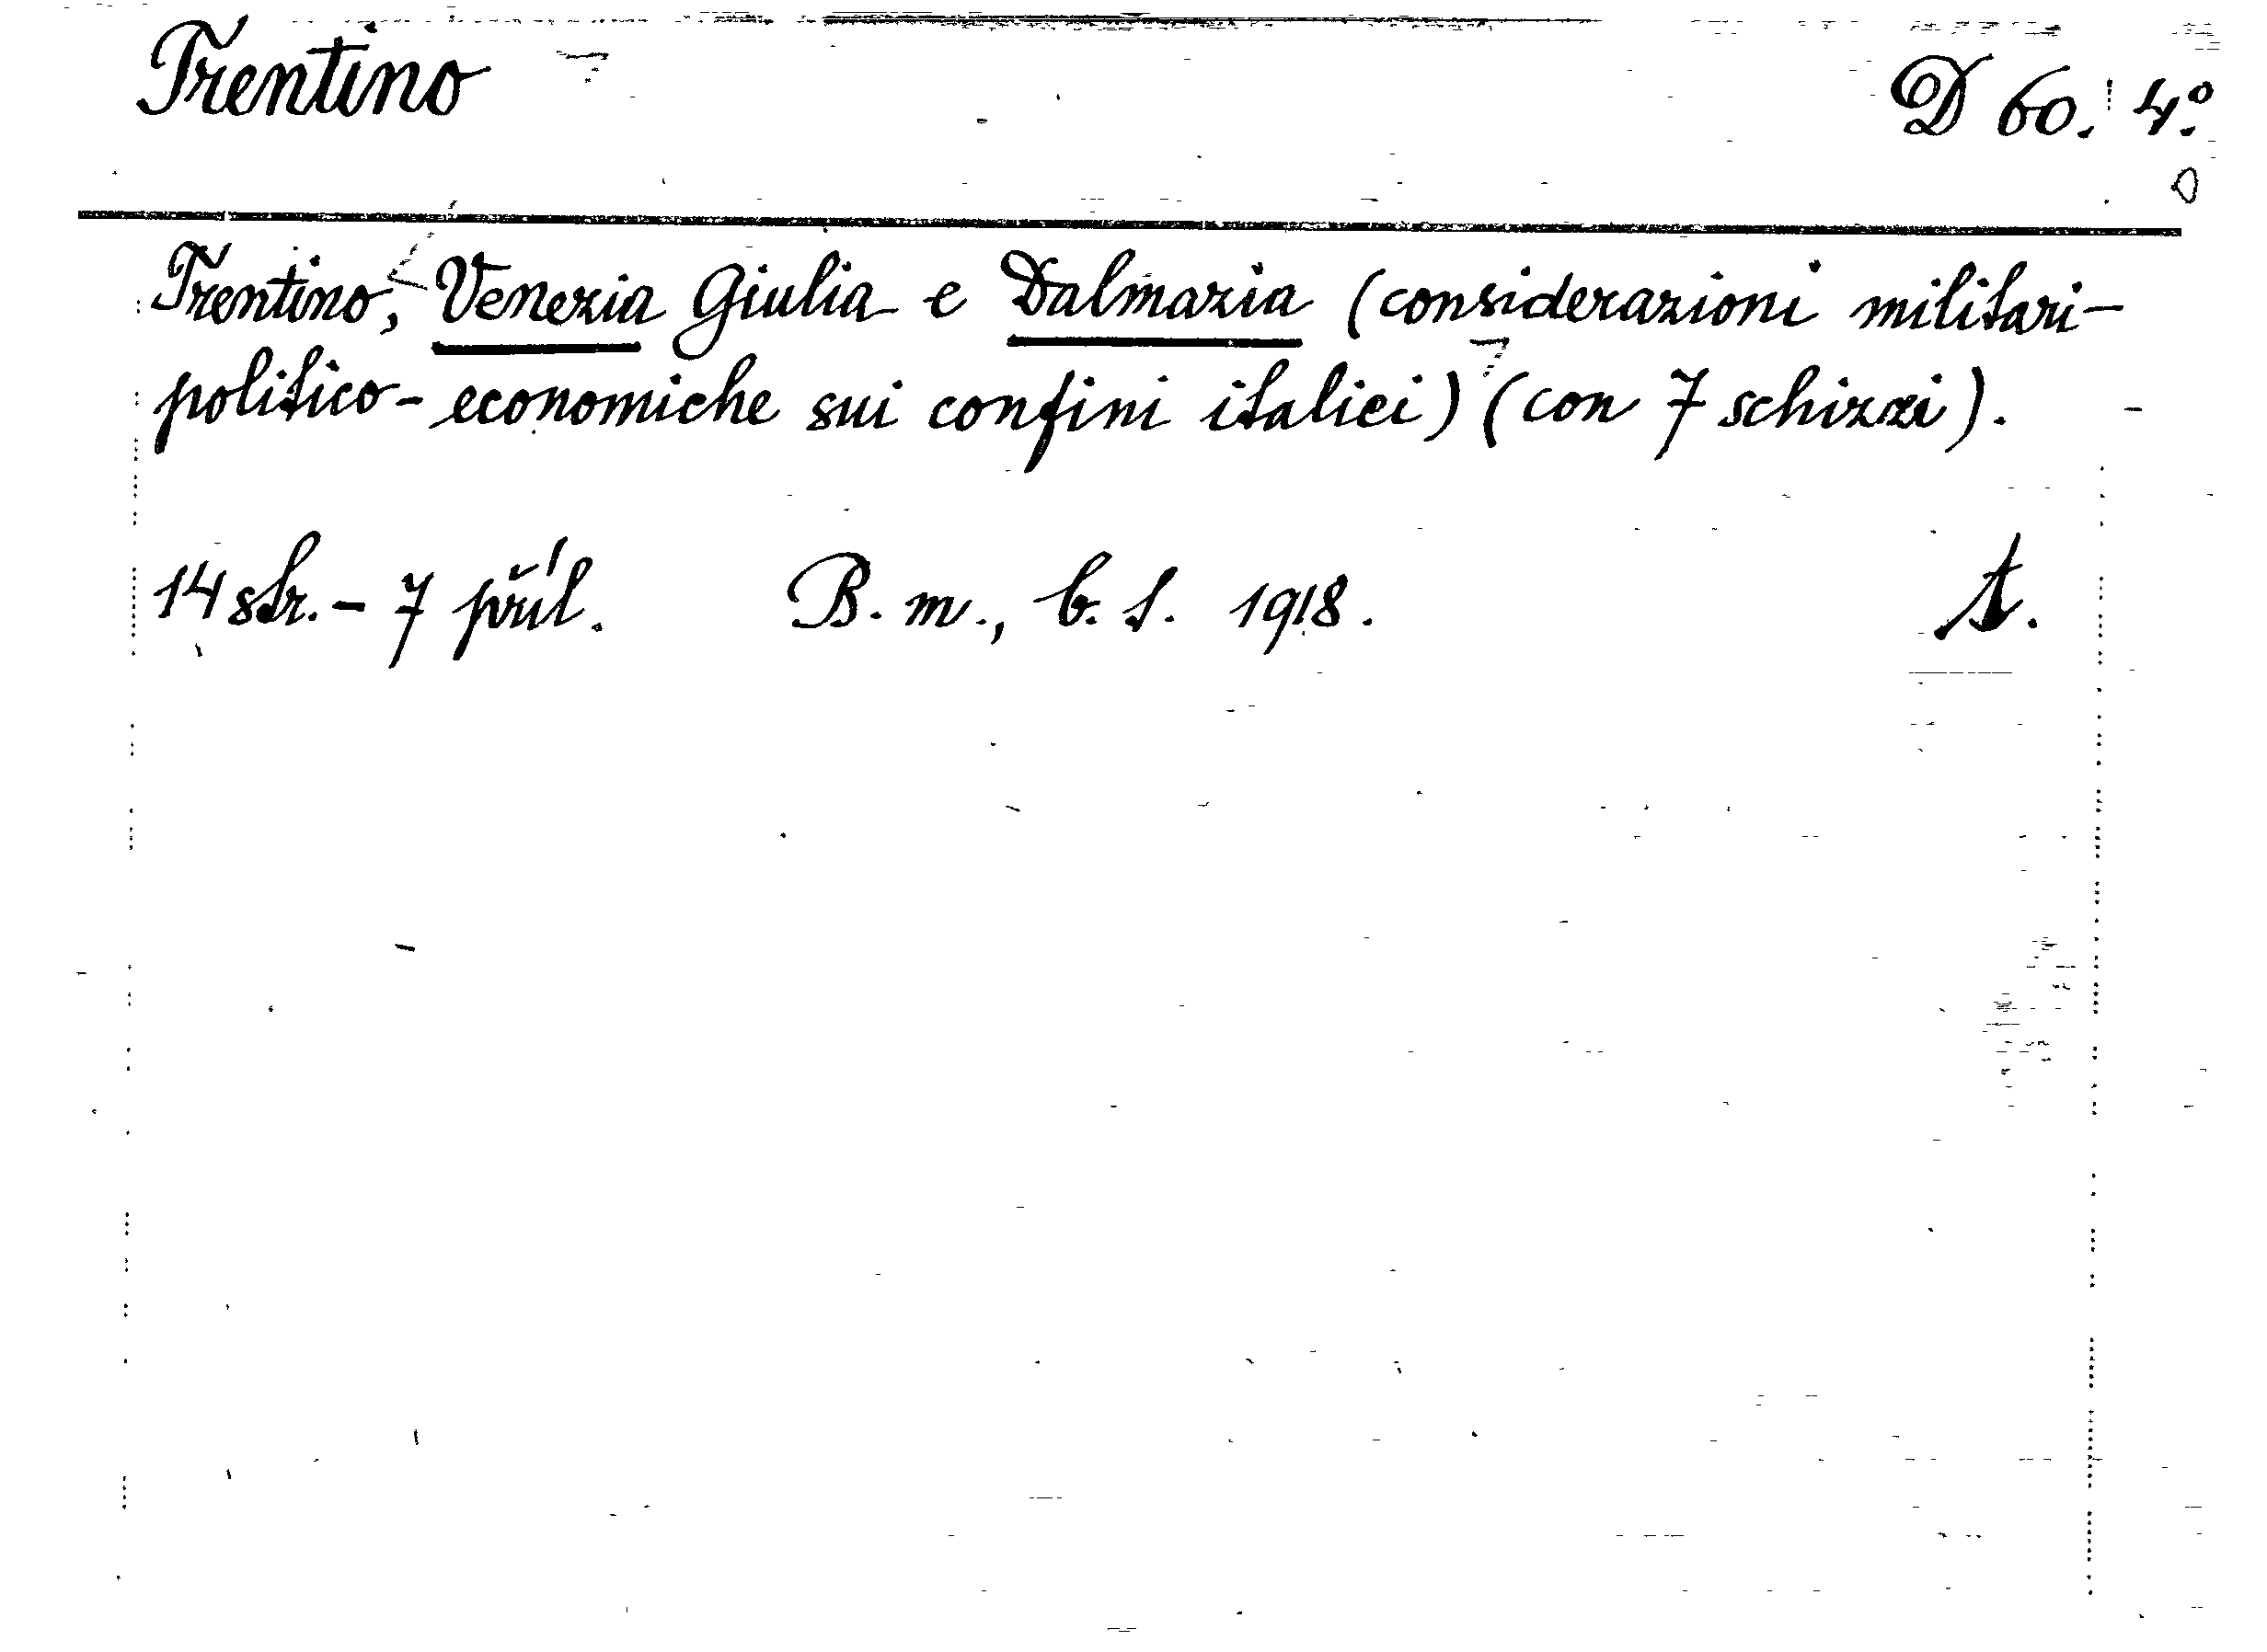 Trentino
D 60. 4°.
Trentino, Venezia Giulia e Dalmazia (considerazioni militari-
politico-economiche sui confini italici) (con 7 schizzi).
14 str. - 7 příl. B. m., b. s. 1918.